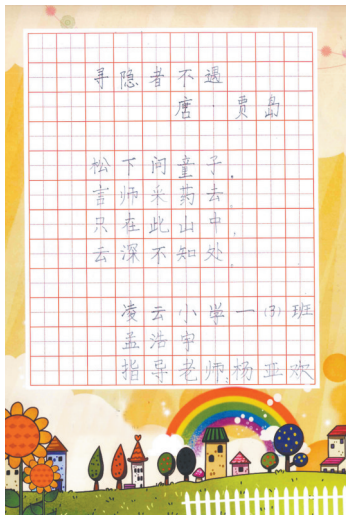 寻隐者不遇
唐·贾岛
松下问童子。
言师采药去。
只在此山中，
云深不知处。
凌云小学一(3)班
孟浩宇
指导老师:杨亚欢